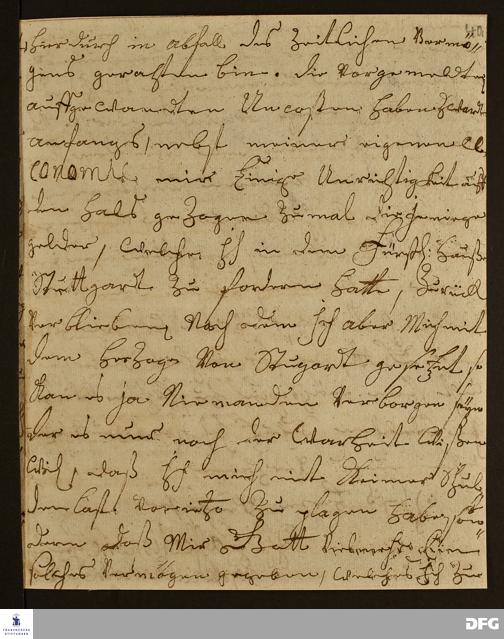 hierdurch in abfall des Zeitlichen Vermö=
gens gerahten bin. Die Vorgemeldten
auffgewandten Uncosten haben Zwardt
anfangs, nebst meiner eigenen
conomie mir Einige Unrichtigkeit auff
den Hals gezogen Zumal diejenige
gelder, welche Ich in dem Fürstl: Hause
Stuttgardt Zu fordern hatte, Zurück
Verblieben, Nach dem Ich aber Mich mit
dem Herzoge Von Stugardt gesetzet so
kan es ja Niemanden Verborgen seyn
der es nur nach der Warheit Wißen
Will, daß Ich mich mit Keiner Schul
den last Zu plagen habe, son=
dern daß Mir Gott
solches Vermögen gegeben, welches Ich Zur
FRANCKESCHE STIFTUNGEN
DFG